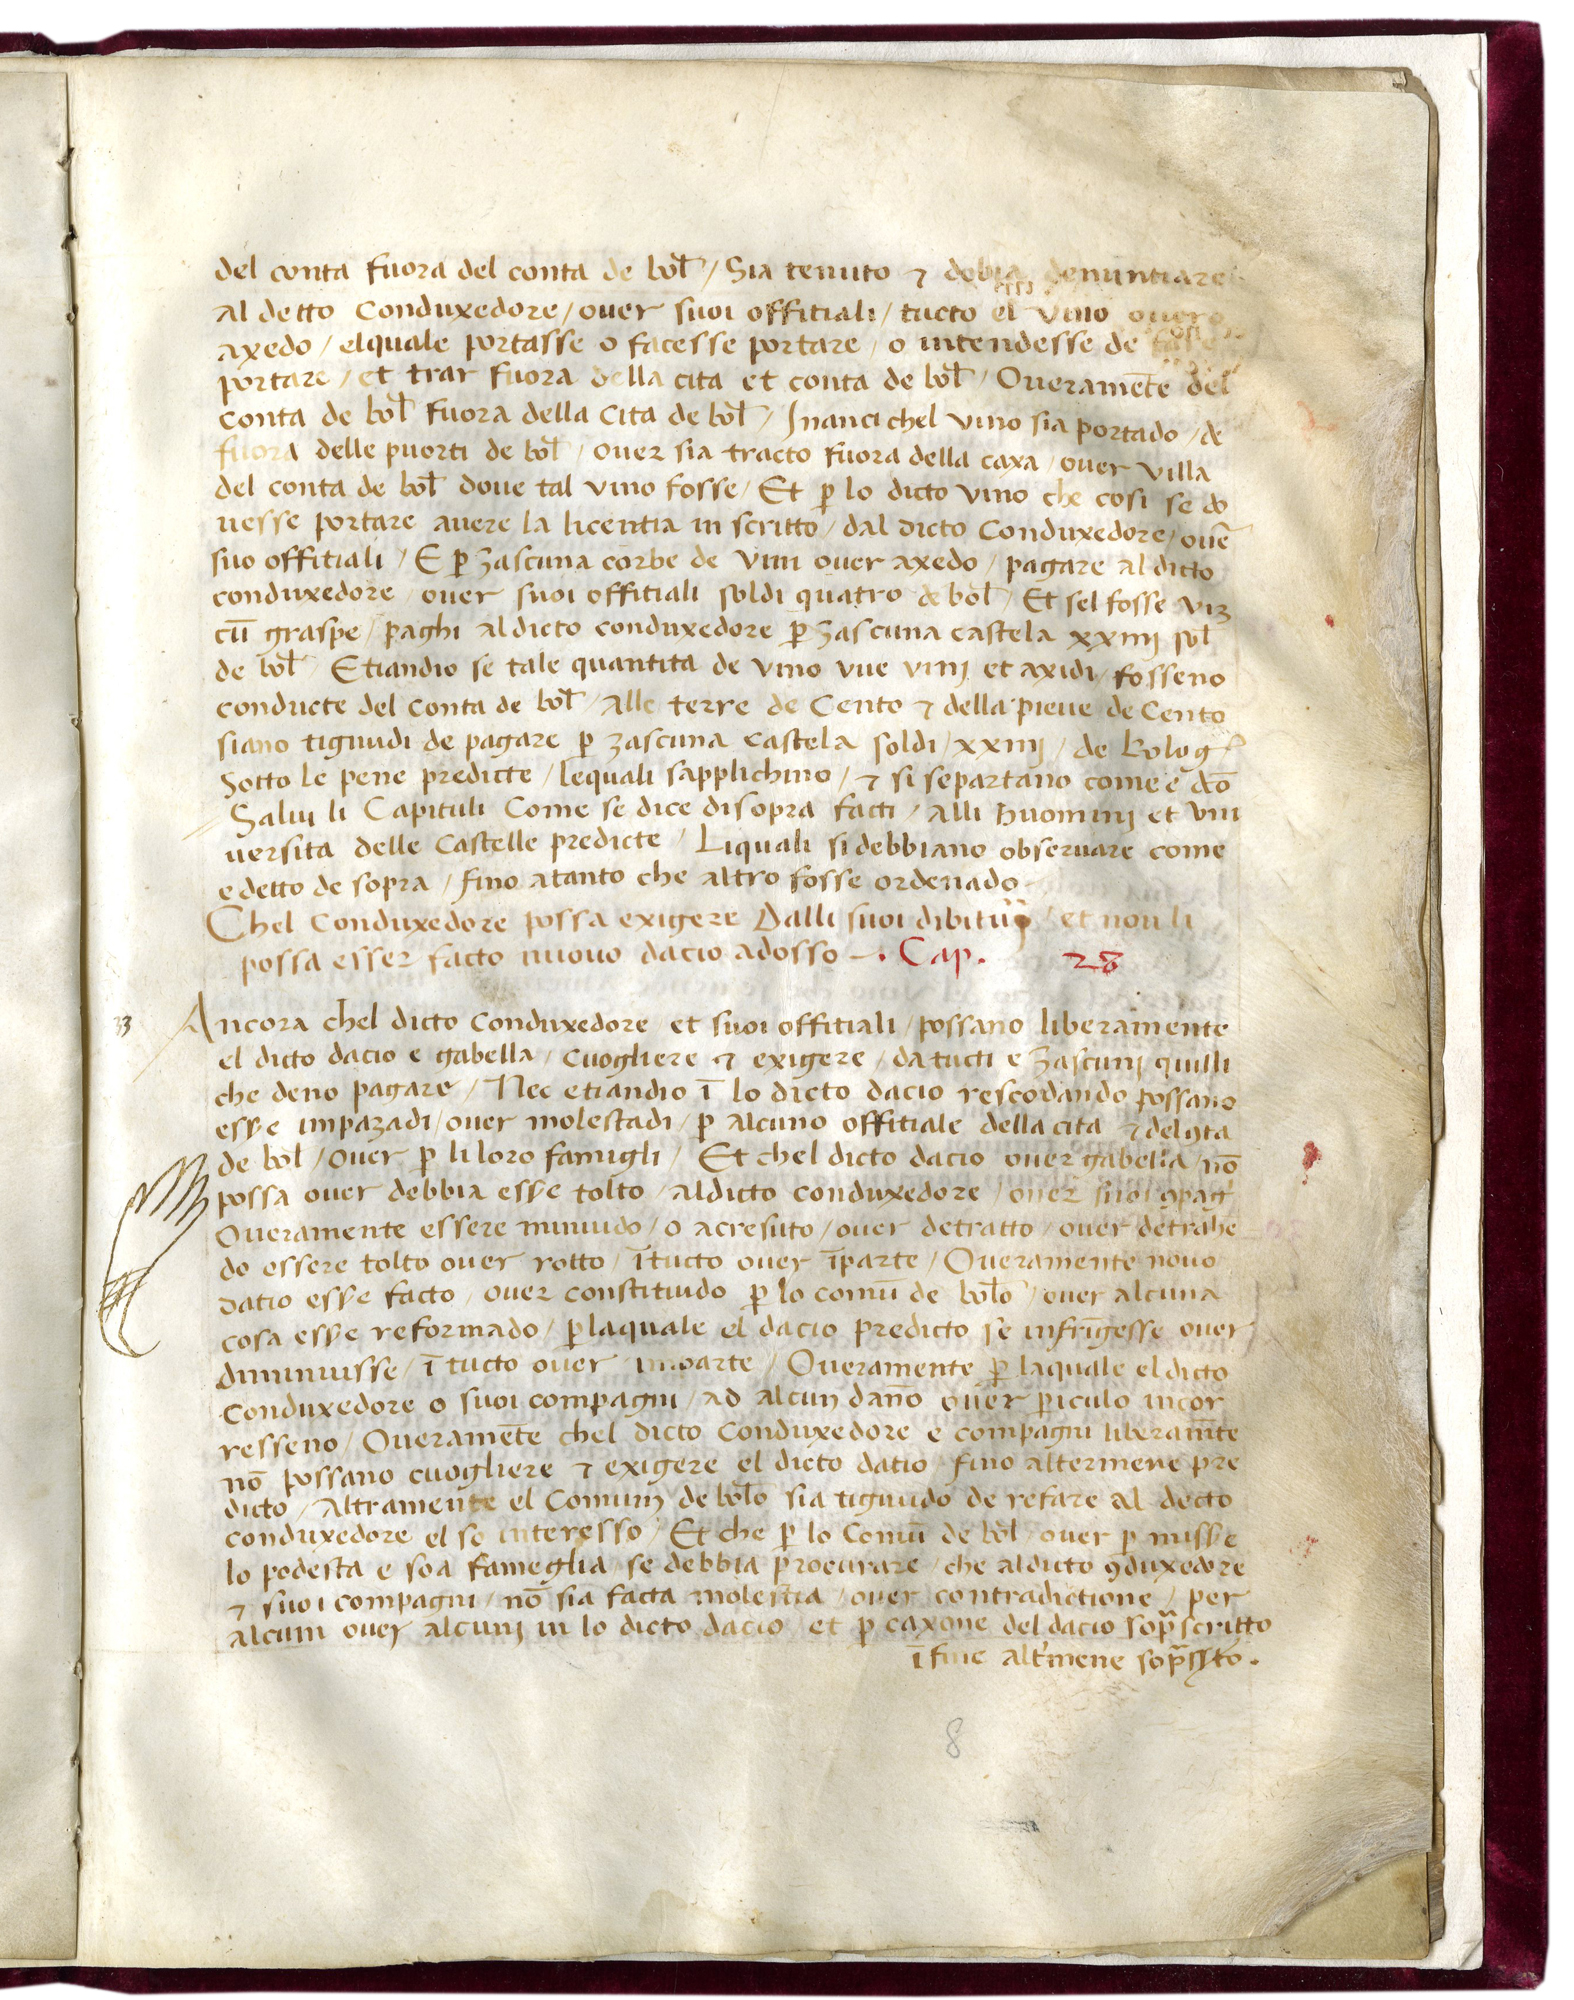 del conta fuora del conta de bol / Sia tenuto ⁊ debia denuntiare
al detto Conduxedore / ouer suoi offitiali / tucto el vino ouero
axedo / elquale portasse o facesse portare / o intendesse de
portare / et trar fuora della cita et conta de bol / Oueramēte del
conta de bol fuora della Cita de bol / Inanci chel vino sia portado / de
fuora delle puorti de bol / ouer sia tracto fuora della caxa / ouer villa
del conta de bol doue tal vino fosse / Et ꝑ lo dicto vino che cosi se do
uesse portare auere la licentia in scritto / dal dicto Conduxedore / ouē
suo offitiali / E ꝑ zascuna corbe de vini ouer axedo / pagare al dicto
conduxedore / ouer suoi offitiali soldi quatro de bol / Et sel fosse viz
cū graspe / paghi al dicto conduxedore ꝑ zascuna castela xxiiij sol
de bol / Etiandio se tale quantita de vino vue vinj et axidi / fosseno
conducte del Conta de bol / Alle terre de Cento ⁊ della pieue de Cento
siano tignudi de pagare ꝑ zascuna castela soldi / xxiiij / de Bolog
Sotto le pene predicte / lequali sapplichino / ⁊ si separtano come e dco
Salui li Capituli Come se dice disopra facti / alli huominj et vni
uersita delle Castelle predicte / Liquali si debbiano obseruare come
e detto de sopra / fino atanto che altro fosse ordenado
Chel Conduxedore possa exigere Dalli suoi / et non li
possa esser facto nuouo dacio adosso – . Cap. 28
33 Ancora chel dicto Conduxedore et suoi offitiali / possano liberamente
el dicto dacio e gabella / cuogliere ⁊ exigere / da tucti e zascunj quilli
che deno pagare / Nec etiandio ī lo dicto dacio rescodando possano
esse impazadi / ouer molestadi / ꝑ alcuno offitiale della cita ⁊ del ꝯta
de bol / ouer ꝑ li loro famigli / Et chel dicto dacio ouer gabella / nō
possa ouer debbia esse tolto / al dicto conduxedore / ouer suoi ꝯpag
Oueramente essere minuido / o acresuto / ouer detratto / ouer detrahe
do essere tolto ouer rotto / ī tucto ouer īparte / Oueramente nouo
datio esse facto / ouer constituido ꝑ lo comū de bolo / ouer alcuna
cosa esse reformado / ꝑ laquale el dacio predicto se infrīgesse ouer
diminuisse / ī tucto ouer inparte / Oueramente ꝑ laquale el dicto
Conduxedore o suoi compagni / ad alcun danno ouer ꝑiculo incor
resseno / Oueramēte chel dicto Conduxedore e compagni liberamēte
nō possano cuogliere ⁊ exigere el dicto datio fino altermene pre
dicto / Altramente el Comun de bolo sia tignudo de refare al decto
conduxedore el so interesso / Et che ꝑ lo Comū de bol / ouer ꝑ misse
lo podesta e soa fameglia / se debbia procurare / che al dicto ꝯduxedore
⁊ suoi compagni / nō sia facta molestia / ouer contradictione / per
alcun ouer alcunj in lo dicto dacio / et ꝑ caxone del dacio sopᵃscritto
ī fine alt'mene sopᵃsto .
8